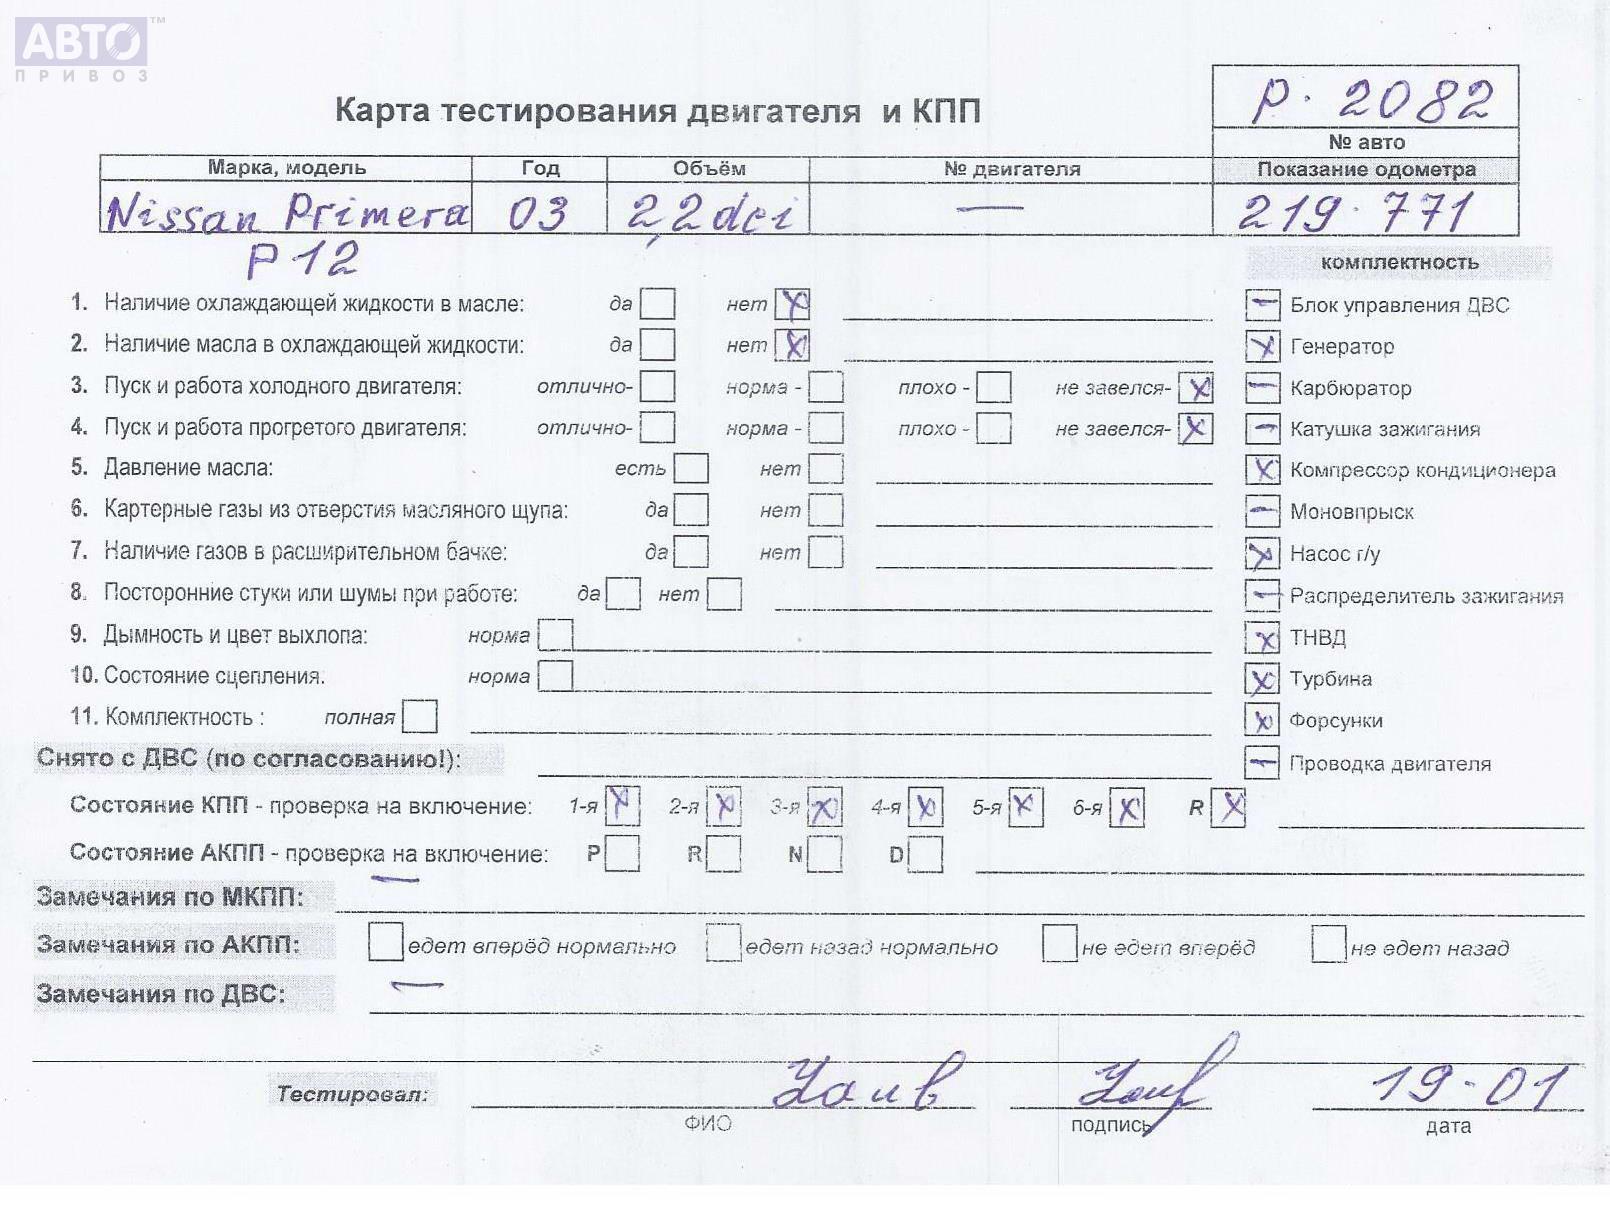 АВТО™
ПРИВОЗ
Р. 2082
Карта тестирования двигателя и КПП
№ авто
Марка, модель Год Объём № двигателя Показание одометра
Nissan Primera 03 2,2dci — 219.771
P12
комплектность
1. Наличие охлаждающей жидкости в масле: да нет X Блок управления ДВС
2. Наличие масла в охлаждающей жидкости: да нет X Генератор
3. Пуск и работа холодного двигателя: отлично- норма - плохо - не завелся- X Карбюратор
4. Пуск и работа прогретого двигателя: отлично- норма - плохо - не завелся- X Катушка зажигания
5. Давление масла: есть нет Компрессор кондиционера
6. Картерные газы из отверстия масляного щупа: да нет Моновпрыск
7. Наличие газов в расширительном бачке: да нет Насос г/у
8. Посторонние стуки или шумы при работе: да нет Распределитель зажигания
9. Дымность и цвет выхлопа: норма ТНВД
10. Состояние сцепления. норма Турбина
11. Комплектность : полная Форсунки
Снято с ДВС (по согласованию!): Проводка двигателя
Состояние КПП - проверка на включение: 1-я X 2-я X 3-я X 4-я X 5-я X 6-я X R X
Состояние АКПП - проверка на включение: P R N D
Замечания по МКПП: —
Замечания по АКПП: едет вперёд нормально едет назад нормально не едет вперёд не едет назад
Замечания по ДВС: —
Тестировал: 19-01
ФИО подпись дата